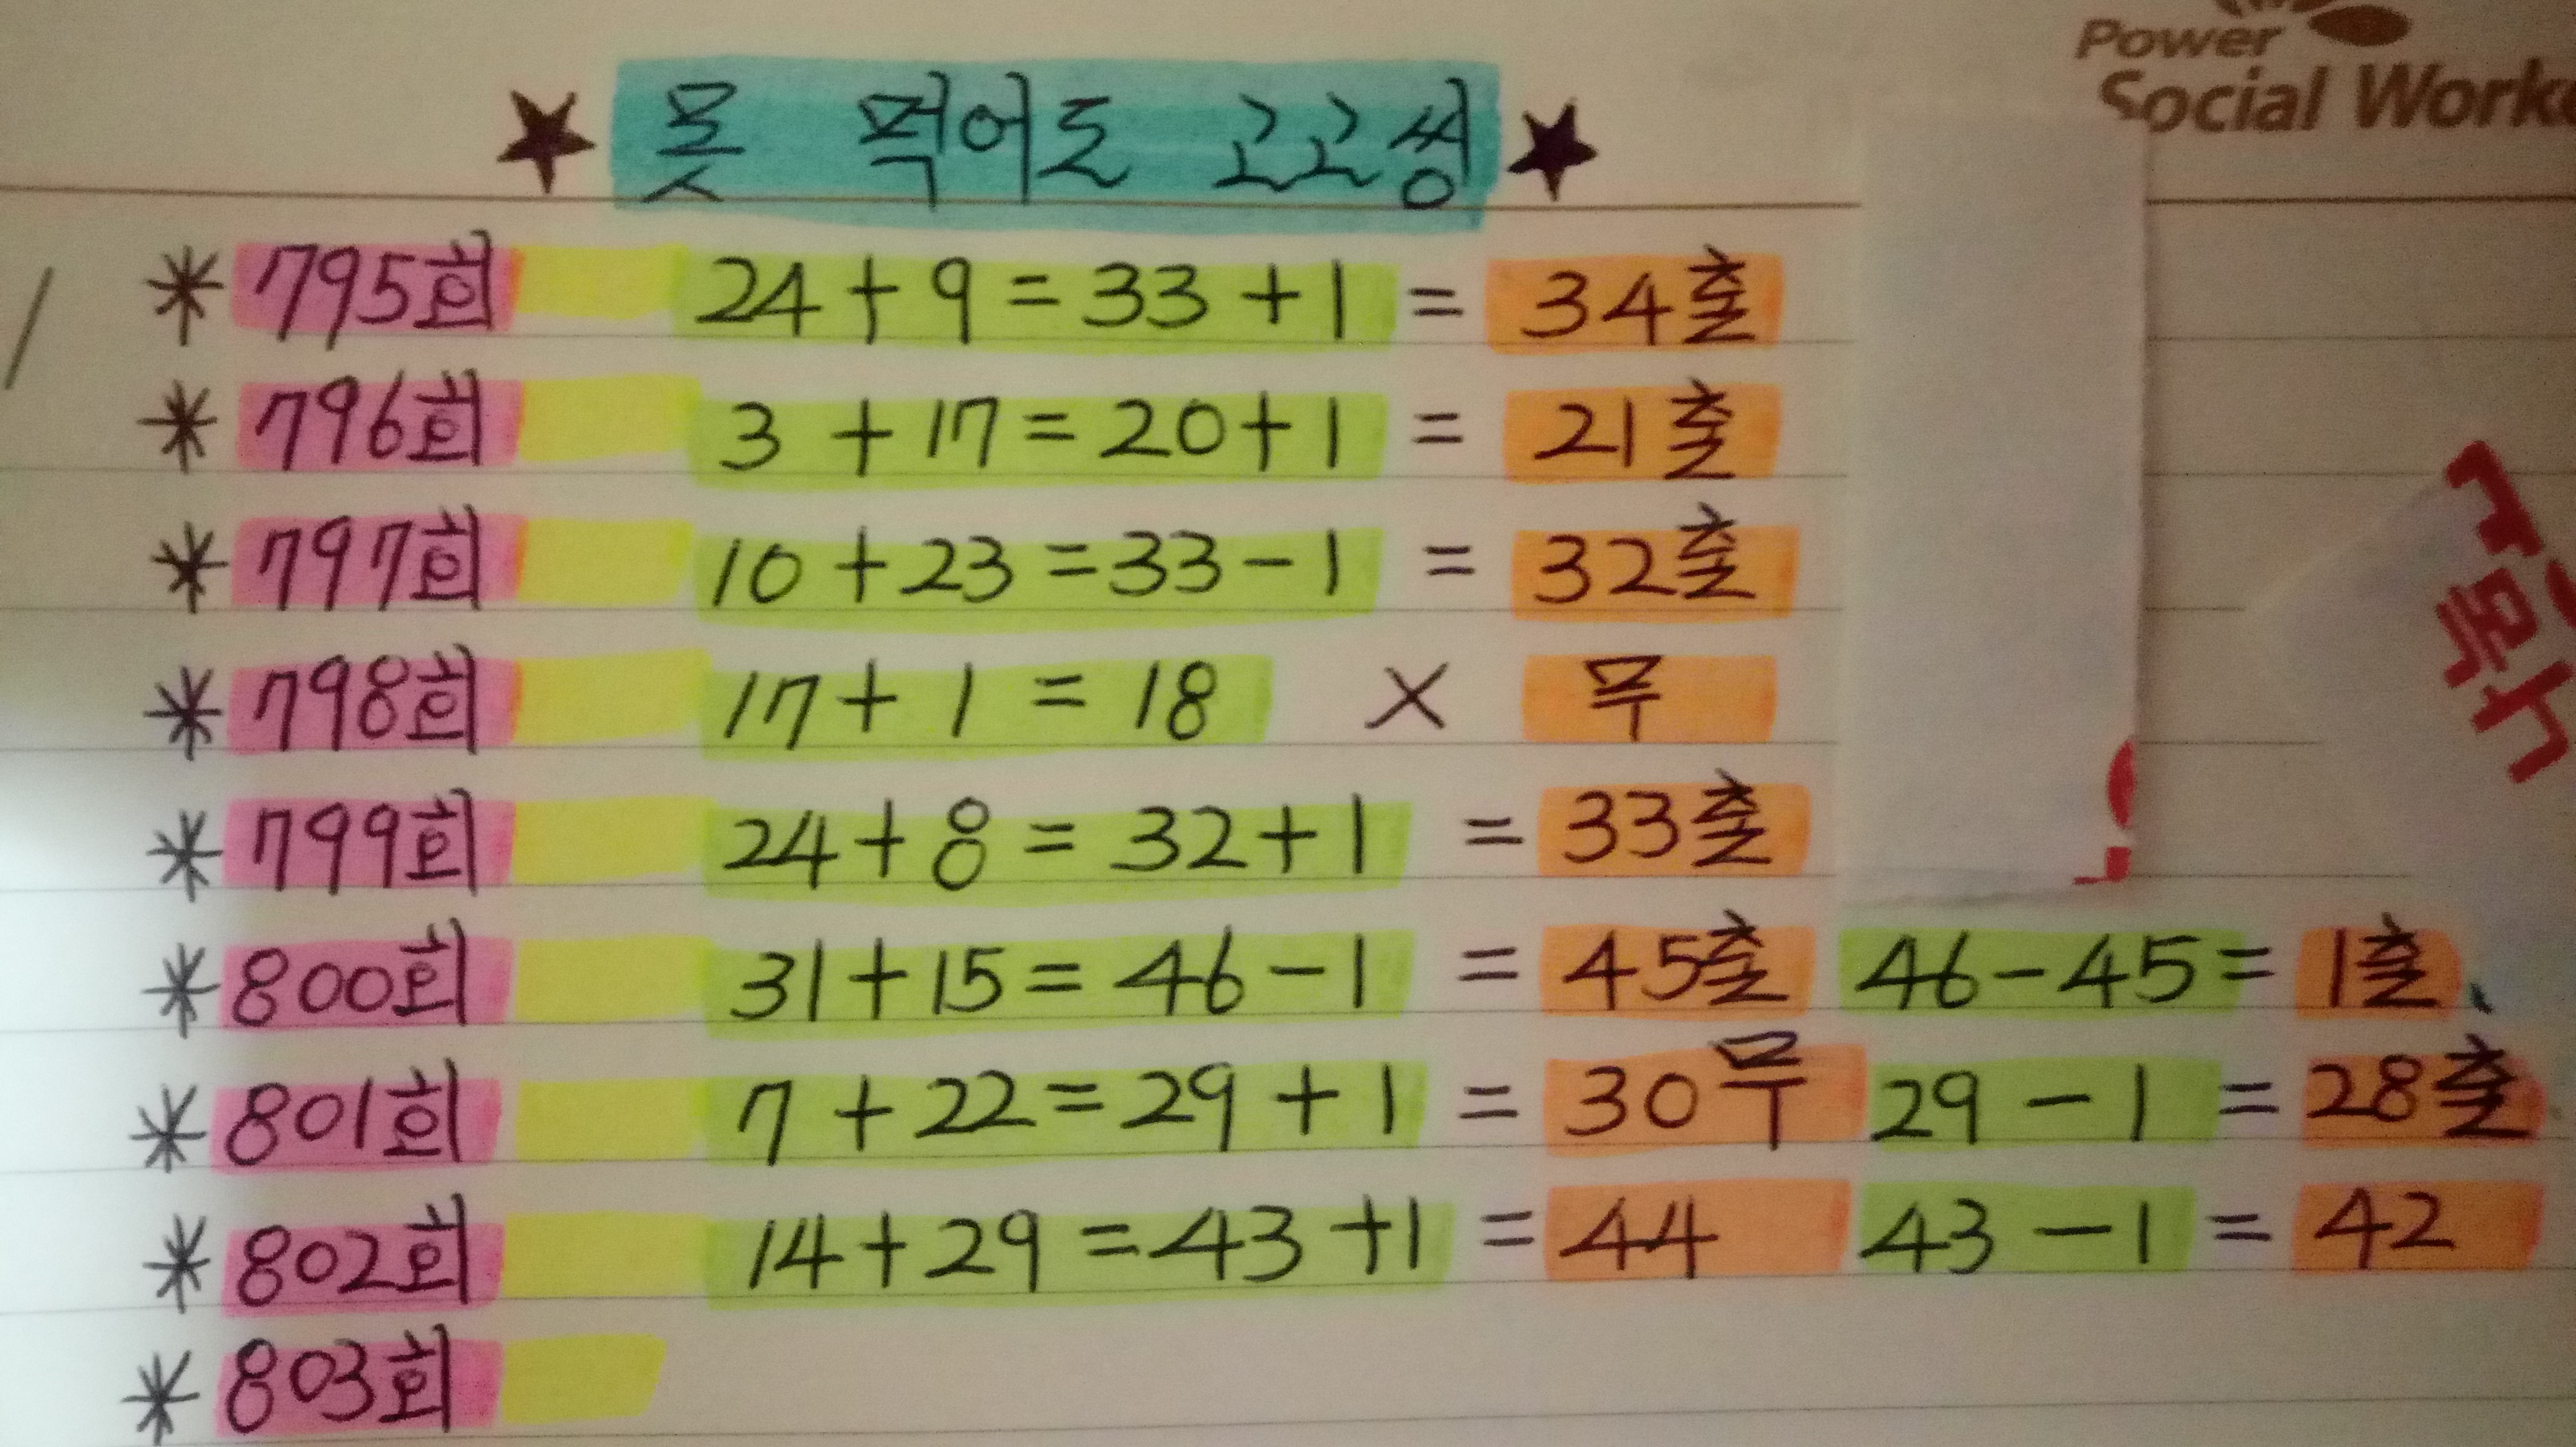 Power
Social Work
★ 못 먹어도 고고씽 ★
* 795회 24 + 9 = 33 + 1 = 34출
* 796회 3 + 17 = 20 + 1 = 21출
* 797회 10 + 23 = 33 - 1 = 32출
* 798회 17 + 1 = 18 × 무
* 799회 24 + 8 = 32 + 1 = 33출
* 800회 31 + 15 = 46 - 1 = 45출 46 - 45 = 1출
* 801회 7 + 22 = 29 + 1 = 30무 29 - 1 = 28출
* 802회 14 + 29 = 43 + 1 = 44 43 - 1 = 42
* 803회